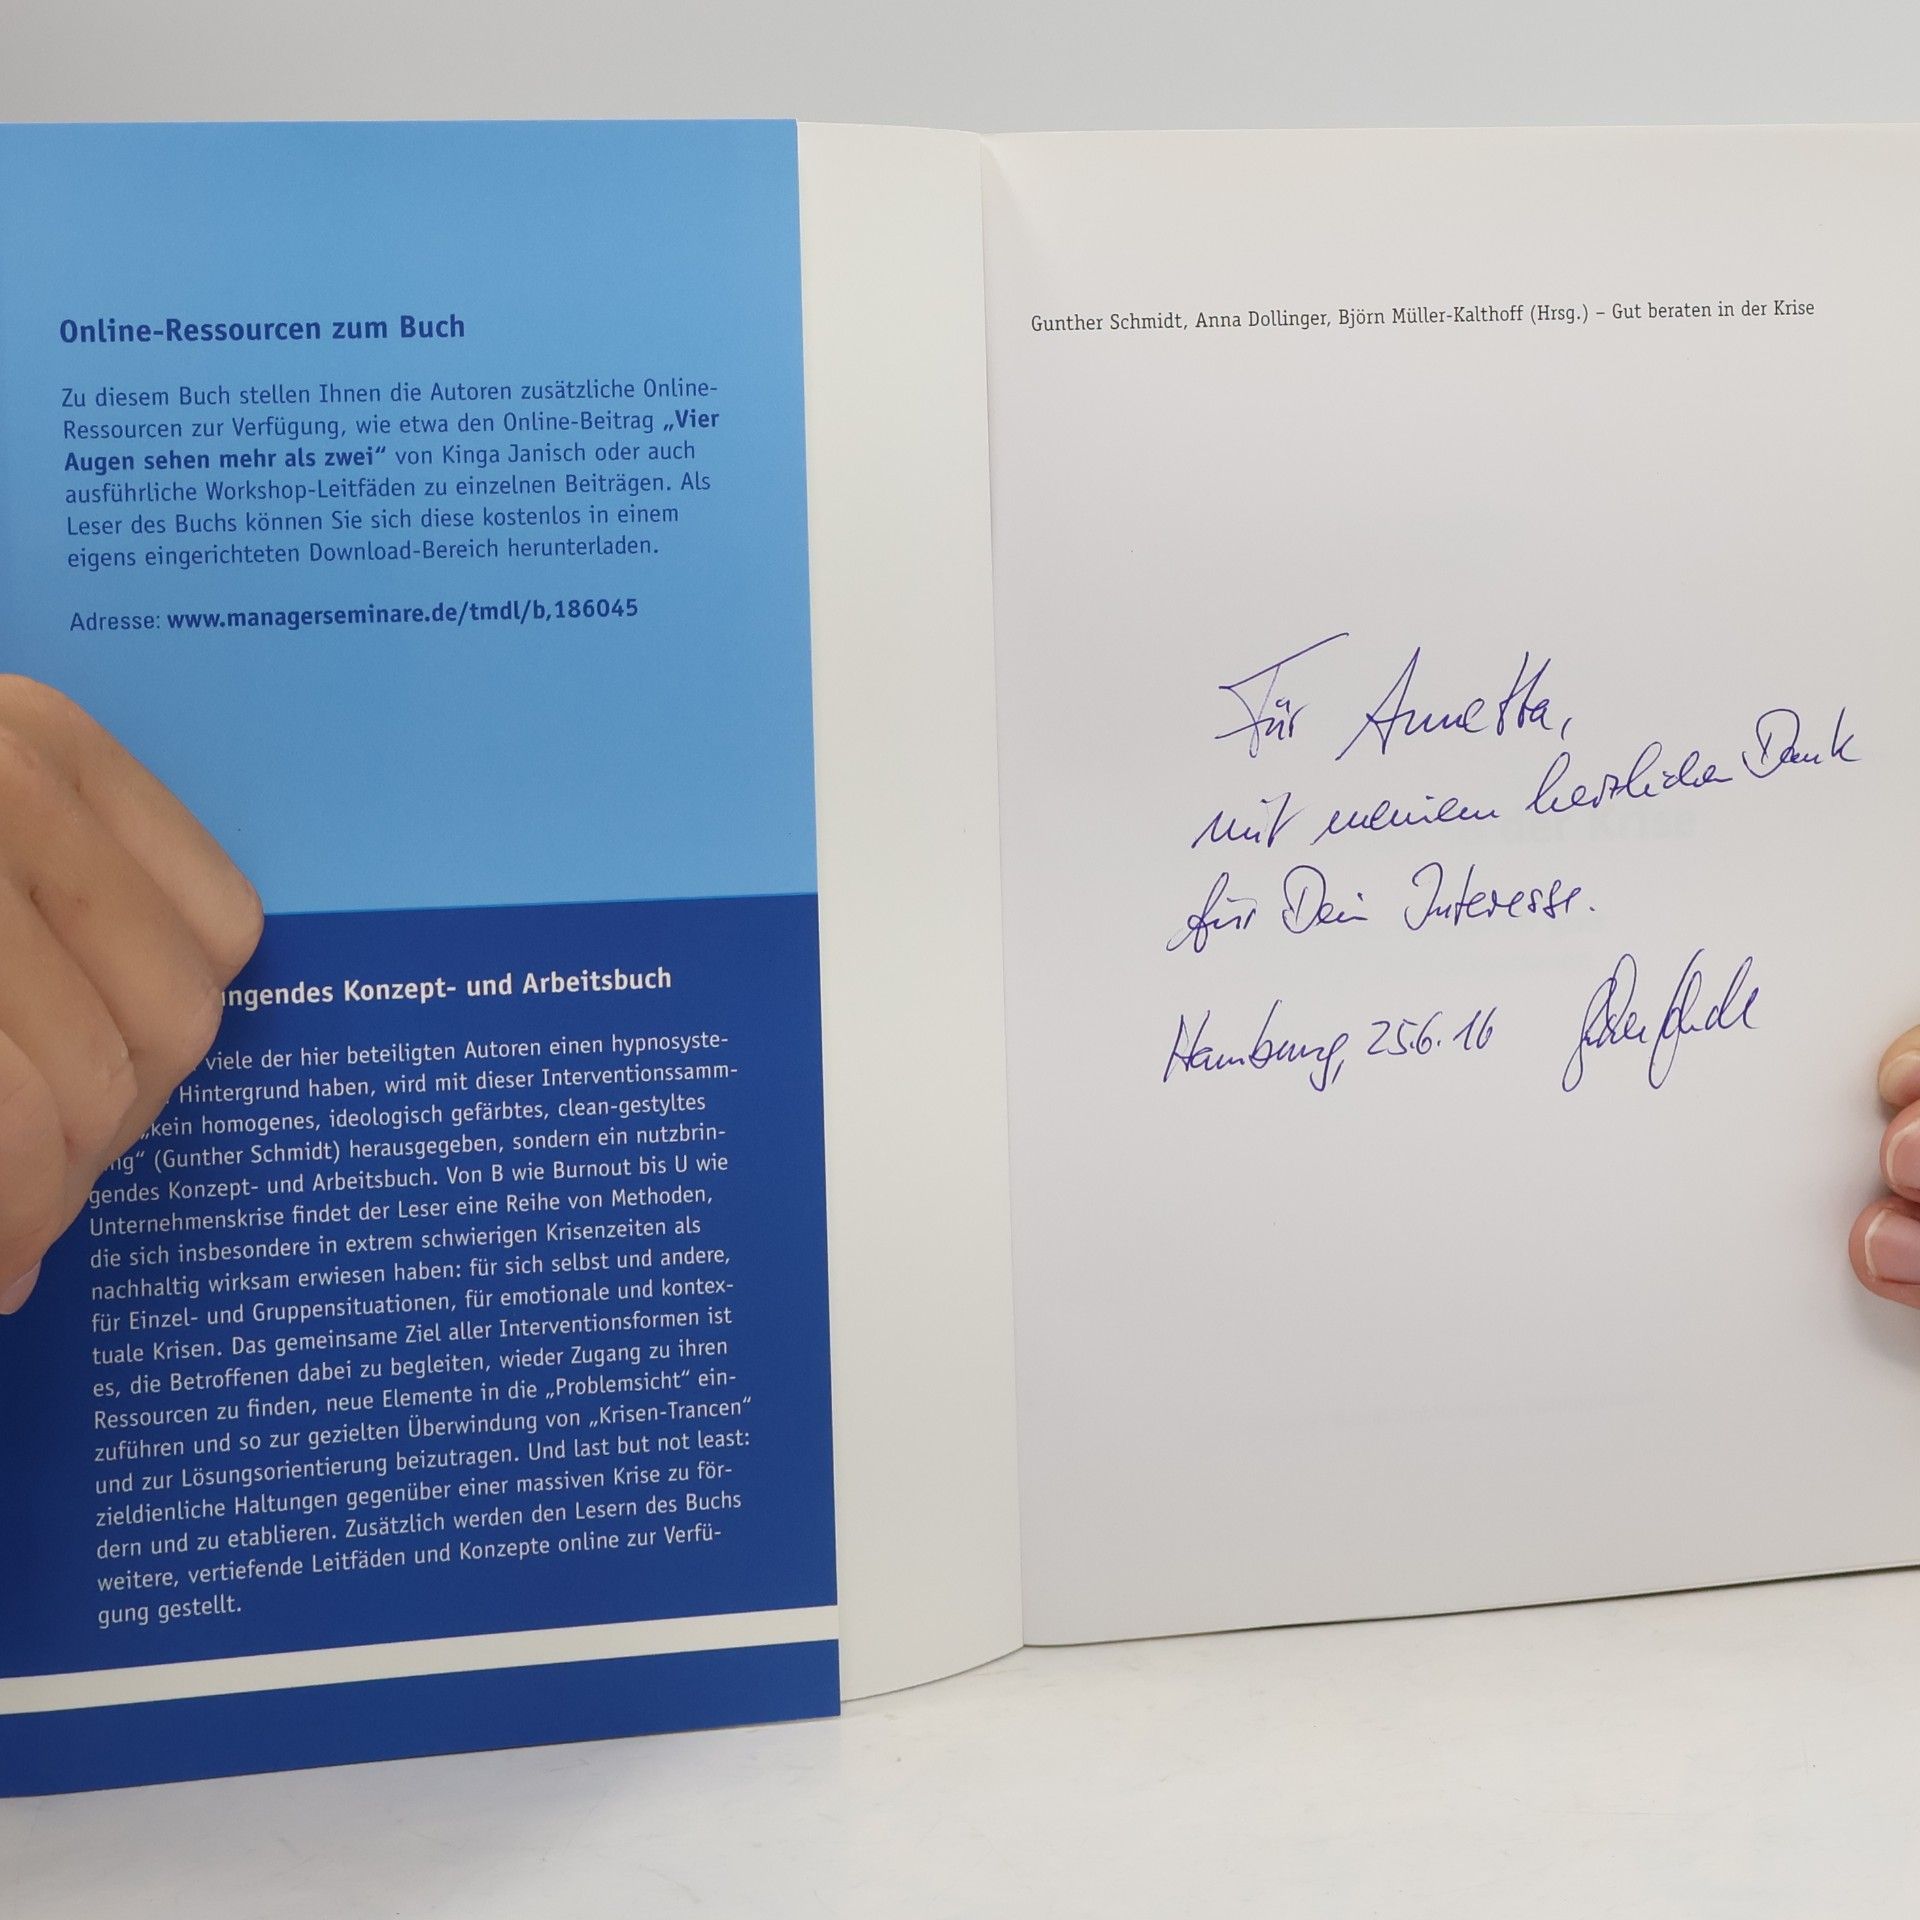 Online-Ressourcen zum Buch
Zu diesem Buch stellen Ihnen die Autoren zusätzliche Online-
Ressourcen zur Verfügung, wie etwa den Online-Beitrag „Vier
Augen sehen mehr als zwei“ von Kinga Janisch oder auch
ausführliche Workshop-Leitfäden zu einzelnen Beiträgen. Als
Leser des Buchs können Sie sich diese kostenlos in einem
eigens eingerichteten Download-Bereich herunterladen.
Adresse: www.managerseminare.de/tmdl/b,186045
ingendes Konzept- und Arbeitsbuch
viele der hier beteiligten Autoren einen hypnosyste-
Hintergrund haben, wird mit dieser Interventionssamm-
„kein homogenes, ideologisch gefärbtes, clean-gestyltes
ng“ (Gunther Schmidt) herausgegeben, sondern ein nutzbrin-
gendes Konzept- und Arbeitsbuch. Von B wie Burnout bis U wie
Unternehmenskrise findet der Leser eine Reihe von Methoden,
die sich insbesondere in extrem schwierigen Krisenzeiten als
nachhaltig wirksam erwiesen haben: für sich selbst und andere,
für Einzel- und Gruppensituationen, für emotionale und kontex-
tuale Krisen. Das gemeinsame Ziel aller Interventionsformen ist
es, die Betroffenen dabei zu begleiten, wieder Zugang zu ihren
Ressourcen zu finden, neue Elemente in die „Problemsicht“ ein-
zuführen und so zur gezielten Überwindung von „Krisen-Trancen“
und zur Lösungsorientierung beizutragen. Und last but not least:
zieldienliche Haltungen gegenüber einer massiven Krise zu för-
dern und zu etablieren. Zusätzlich werden den Lesern des Buchs
weitere, vertiefende Leitfäden und Konzepte online zur Verfü-
gung gestellt.
Gunther Schmidt, Anna Dollinger, Björn Müller-Kalthoff (Hrsg.) – Gut beraten in der Krise
Für Annetta,
mit meinem herzlichen Dank
für Dein Interesse.
Hamburg, 25.6.16